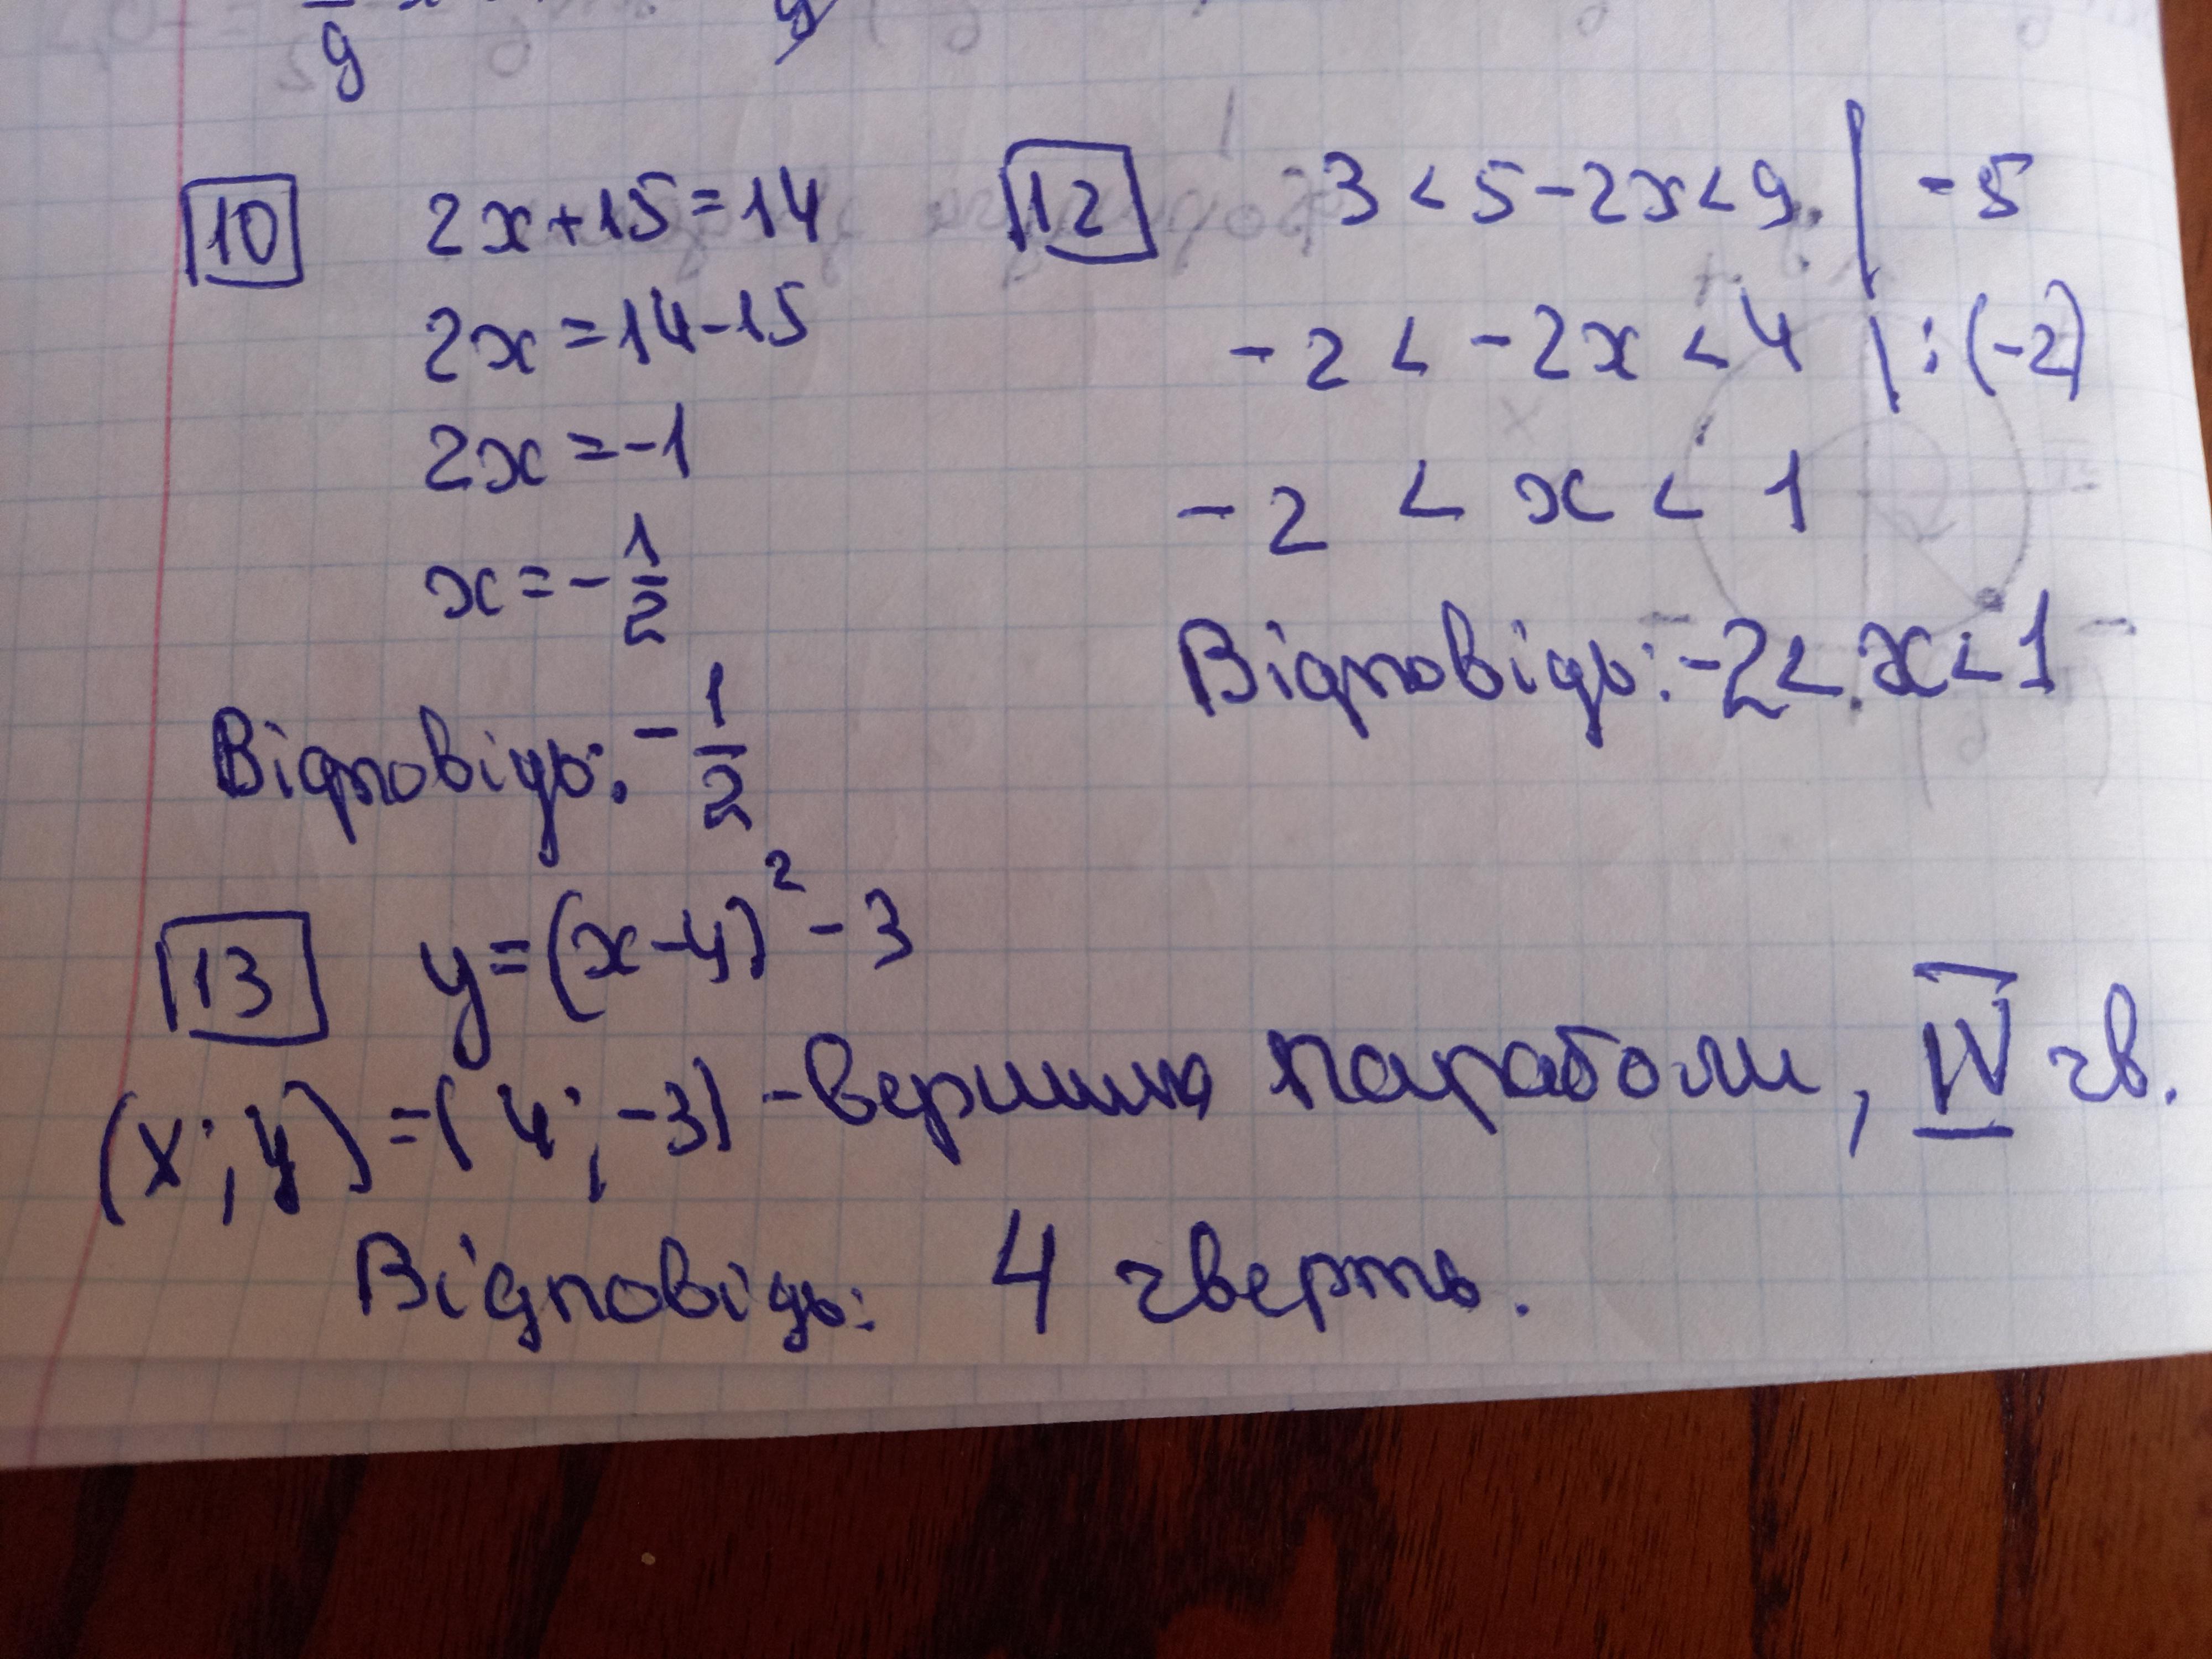 9
10 2x+15=14
2x=14-15
2x=-1
x=-1/2
Відповідь: -1/2
12 3<5-2x<9 | -5
-2 < -2x < 4 | :(-2)
-2 < x < 1
Відповідь: -2<x<1
13 y=(x-4)²-3
(x; y)=(4; -3) - вершина параболи, IV чв.
Відповідь: 4 чверть.